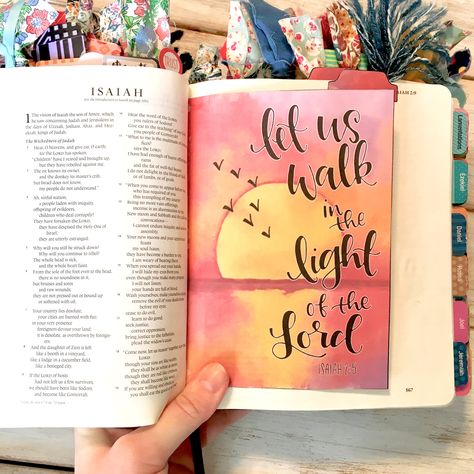 ISAIAH
ISAIAH 2:9
1 The vision of Isaiah the son of Amoz, which
he saw concerning Judah and Jerusalem in
the days of Uzziah, Jotham, Ahaz, and Hez-
ekiah, kings of Judah.
The Wickedness of Judah
Hear, O heavens, and give ear, O earth;
for the LORD has spoken:
"Children have I reared and brought up,
but they have rebelled against me.
The ox knows its owner,
and the donkey its master's crib,
but Israel does not know,
my people do not understand."
Ah, sinful nation,
a people laden with iniquity,
offspring of evildoers,
children who deal corruptly!
They have forsaken the LORD,
they have despised the Holy One of
Israel,
they are utterly estranged.
Why will you still be struck down?
Why will you continue to rebel?
The whole head is sick,
and the whole heart faint.
From the sole of the foot even to the head,
there is no soundness in it,
but bruises and sores
and raw wounds;
they are not pressed out or bound up
or softened with oil.
Your country lies desolate;
your cities are burned with fire;
in your very presence
foreigners devour your land;
it is desolate, as overthrown by foreign-
ers.
And the daughter of Zion is left
like a booth in a vineyard,
like a lodge in a cucumber field,
like a besieged city.
If the LORD of hosts
had not left us a few survivors,
we should have been like Sodom,
and become like Gomorrah.
Hear the word of the LORD,
you rulers of Sodom!
Give ear to the teaching
you people of Gomorrah!
"What to me is the multitude of
says the LORD;
I have had enough of burnt
rams
and the fat of well-fed beasts;
I do not delight in the blood of
or of lambs, or of goats.
"When you come to appear before
who has required of you
this trampling of my courts?
Bring no more vain offerings;
incense is an abomination to
New moon and Sabbath and the
convocations—
I cannot endure iniquity and
assembly.
Your new moons and your appointed
feasts
my soul hates;
they have become a burden to
I am weary of bearing them.
When you spread out your hands,
I will hide my eyes from you;
even though you make many prayers,
I will not listen;
your hands are full of blood.
Wash yourselves; make yourselves
remove the evil of your deeds
before my eyes;
cease to do evil,
learn to do good;
seek justice,
correct oppression;
bring justice to the fatherless,
plead the widow's cause.
"Come now, let us reason together,
though your sins are like
they shall be as white as
though they are red like
they shall become like
If you are willing and
you shall eat the good of
let us
walk
in the
light
of the
Lord
ISAIAH 2:5
567
Lamentations
Ezekiel
Daniel
Hosea
Joel
Jeremiah